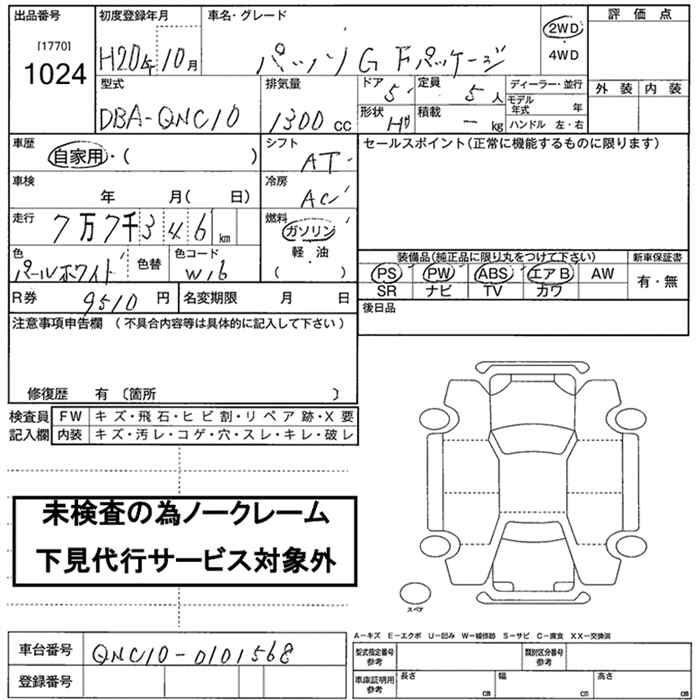 出品番号 初度登録年月 車名・グレード 評価点
[1770]
1024
H20年10月 パッソ G Fパッケージ 2WD
4WD
型式 排気量 ドア 定員 ディーラー・並行 外装 内装
DBA-QNC10 1300cc 5 5人 モデル年式 年
形状 積載 ハンドル 左・右
一 kg
車歴 シフト セールスポイント(正常に機能するものに限ります)
自家用・( ) AT
車検 冷房
年 月( 日) AC
走行 燃料
7万7千346km ガソリン
軽・油
( ・ )
色 色替 色コード 装備品(純正品に限り丸をつけて下さい) 新車保証書
パールホワイト W16 PS PW ABS エアB AW 有・無
SR ナビ TV カワ
R券 9510円 名変期限 月 日 後日品
注意事項申告欄(不具合内容等は具体的に記入して下さい)
修復歴 有 〔箇所 〕
検査員 FW キズ・飛石・ヒビ割・リペア跡・X要
記入欄 内装 キズ・汚レ・コゲ・穴・スレ・キレ・破レ
未検査の為ノークレーム
下見代行サービス対象外
スペア
A−キズ E−エクボ U−凹み W−補修跡 S−サビ C−腐食 XX−交換済
車台番号 QNC10-0101568 型式指定番号 参考 類別区分番号 参考
登録番号 車庫証明用 参考 長さ cm 幅 cm 高さ cm